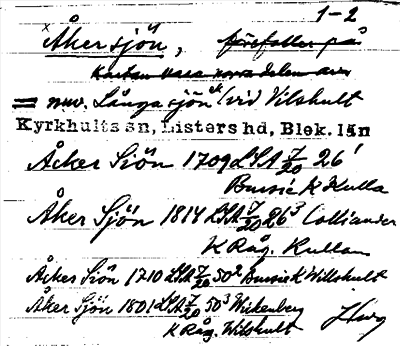 1-2
× Åkersjön, förefaller på
kartan vara norra delen av
= nuv. Långasjön (vid Vilshult
Kyrkhults sn, Listers hd, Blek. län
Åcker Siön 1709 LSA 7/20 26¹
Bussie K Kulla
Åker Sjön 1814 LSA 7/20 26³ Colliander
K Råg. Kullan
Åcker Siön 1710 LSA 7/20 50² Bussie K Willshult
Åker Sjön 1801 LSA 7/20 50³ Wickenberg
K Råg. Wilshult